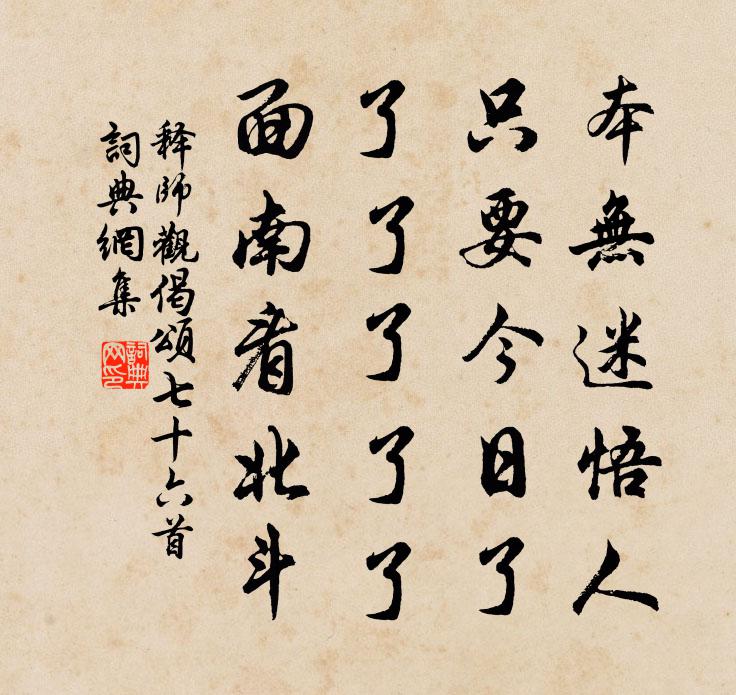 本無迷悟人
只要今日了
了了了了了
面南看北斗
释師觀偈頌七十六首
詞典網集
詞典網印